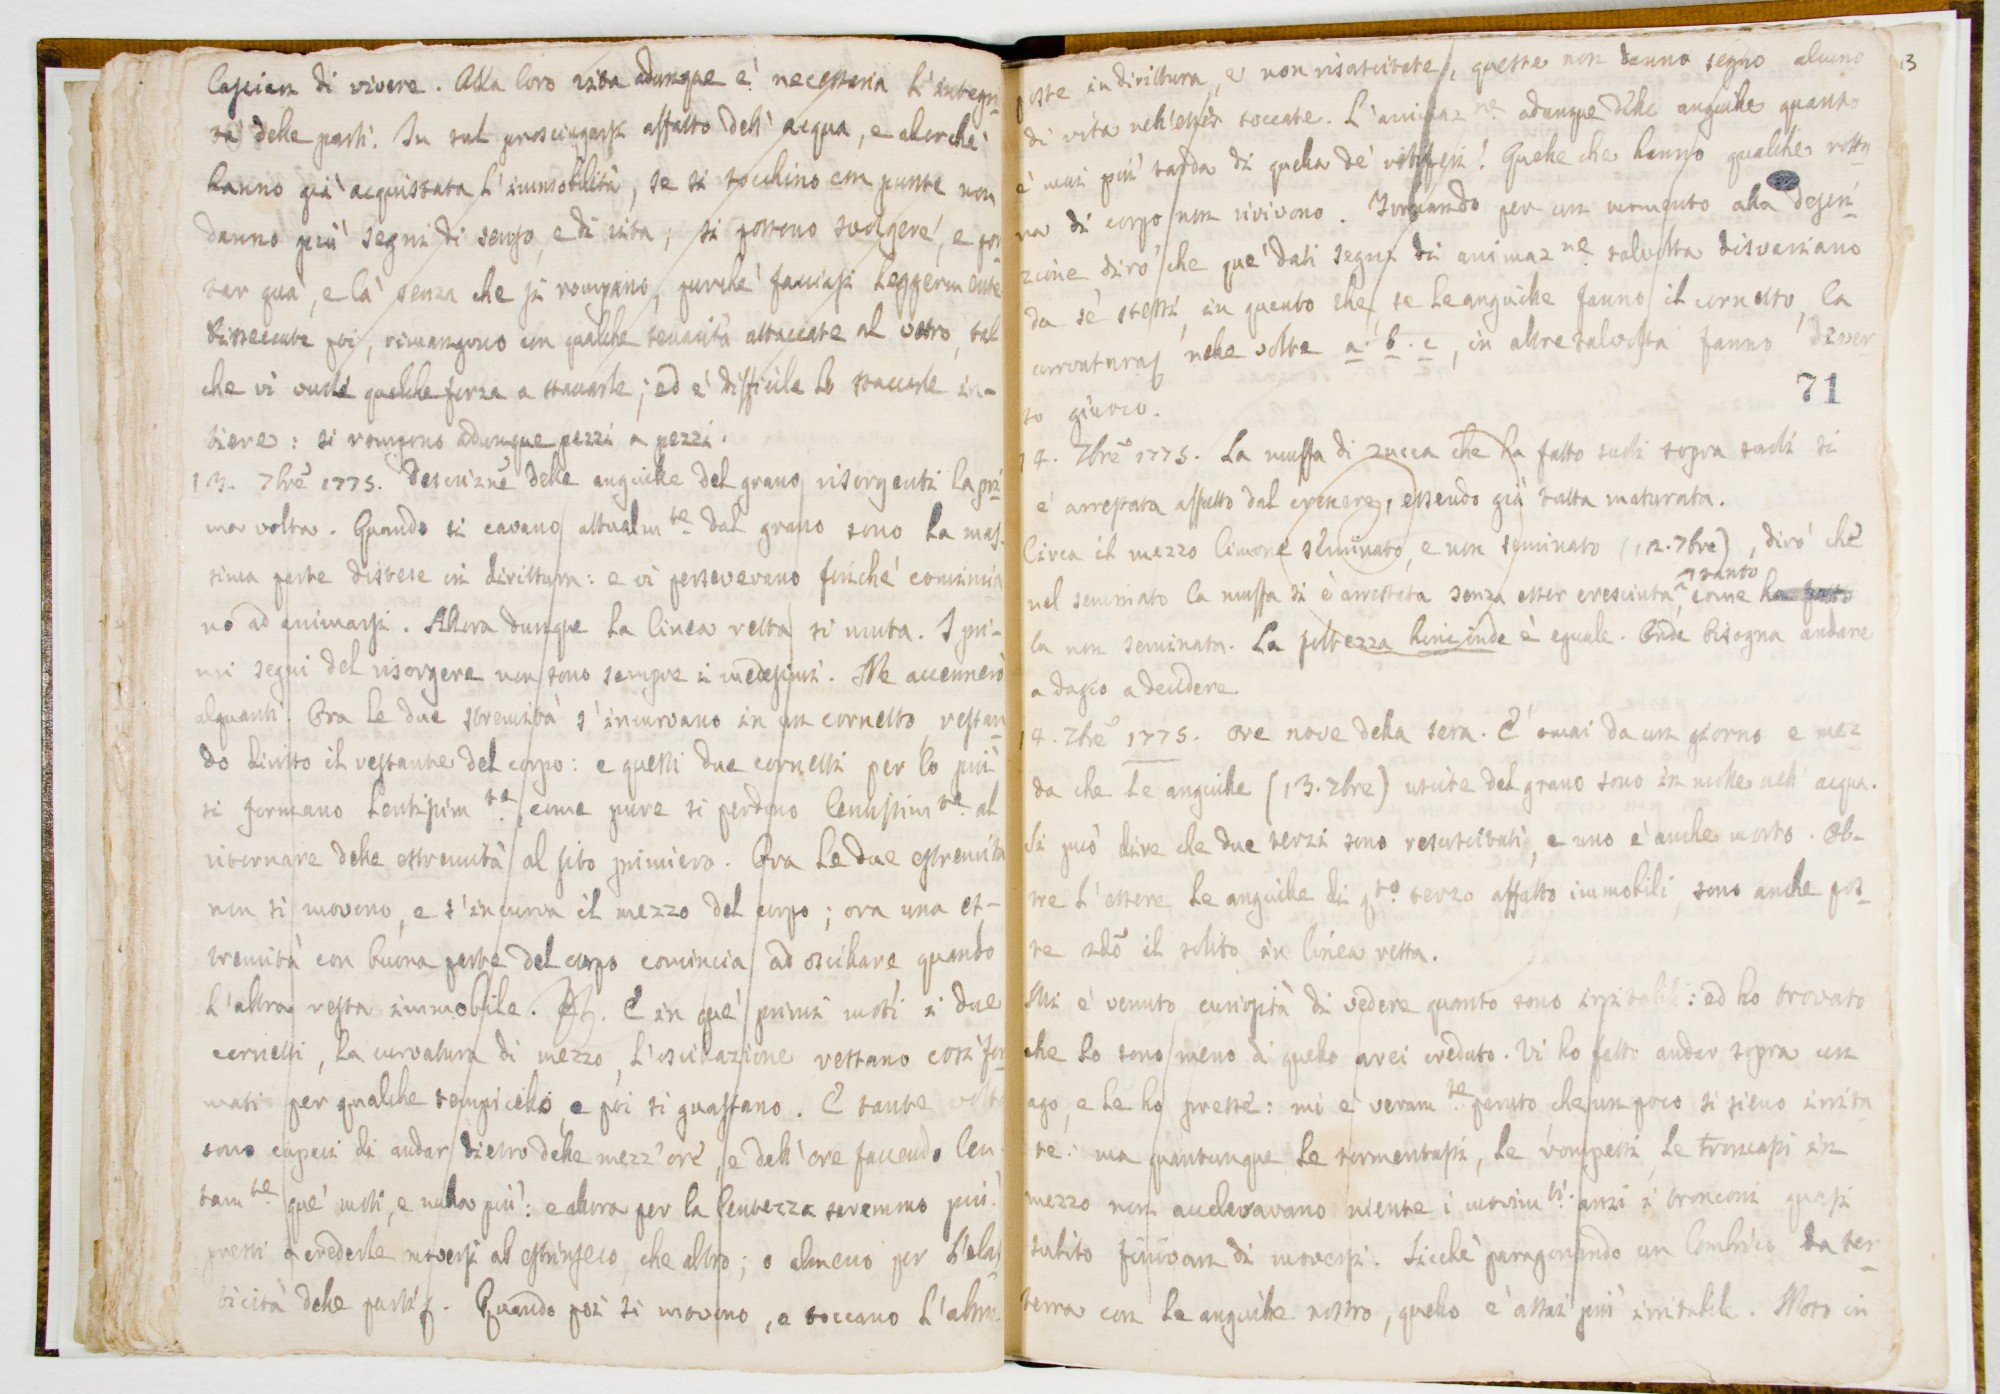 lascian di vivere. Alla loro vita adunque e' necessaria l'integri-
tà delle parti. In sul prosciugarsi affatto dell'acqua, e allorchè
hanno già acquistata l'immobilità, se si tocchino con punte non
danno più segni di senso, e di vita; si possono svolgere, e por-
tar quà, e là senza che si rompino, purchè facciasi leggermente
Disseccate poi, rimangono con qualche tenacità attaccate al vetro, tal
che vi vuole qualche forza a staccarle; ed è difficile lo staccarle in-
tiere: si rompono adunque pezzi a pezzi.
13. 7bre 1775. Descrizne delle anguille del grano risorgenti la pri-
ma volta. Quando si cavano attualmte dal grano sono la mas-
sima parte distese in dirittura: e vi perseverano finchè comincia
no ad animarsi. Allora dunque la linea retta si muta. I pri-
mi segni del risorgere non sono sempre i medesimi. Ne accennerò
alquanti. Ora le due stremità s'incurvano in un cornetto, restan
do diritto il restante del corpo: e questi due cornetti per lo più
si formano lentissimte, come pure si perdono lentissimte al
ritornare delle estremità al sito primiero. Ora le due estremità
non si movono, e s'incurva il mezzo del corpo; ora una es-
tremità con buona parte del corpo comincia ad oscillare quando
l'altra resta immobile. E in que' primi moti i due
cornetti, la curvatura di mezzo, l'oscillazione restano così for
mati per qualche tempicello, e poi si guastano. E tante volte
sono capaci di andar dietro delle mezz'ore, e dell'ore facendo len-
tamte que' moti, e nulla più: e allora per la lentezza saremmo più
presti a crederle moversi ab estrinseco, che altro; o almeno per l'elas
ticità delle parti. Quando poi si movono, e toccano l'altre
13
poste in dirittura, e non risuscitate, queste non danno segno alcuno
di vita nell'esser toccate. L'animazne adunque delle anguille quanto
è mai più tarda di quella de' Quelle che hanno qualche rottu
ra di corpo non rivivono. Tornando per un momento alla descri-
zione dirò che que' dati segni di animazne talvolta disvariano
da sè stessi, in quanto che se le anguille fanno il cornetto, la
curvatura nelle volte a. b. c, in altre talvolta fanno diver
so giuoco.
71
14. 7bre 1775. La muffa di zucca che ha fatto sudi sopra sudi si
è arrestata affatto dal crescere, essendo già tutta maturata.
Circa il mezzo limone seminato, e non seminato (12. 7bre), dirò che
nel seminato la muffa si è arrestata senza esser cresciuta tanto, come ha fatto
la non seminata. La foltezza hinc inde è eguale. Onde bisogna andare
adagio a decidere.
14. 7bre 1775. ore nove della sera. E' omai da un giorno e mez-
da che le anguille (13. 7bre) uscite del grano sono in molle nell'acqua.
Si può dire che due terzi sono resuscitati, e uno è anche morto. Ol-
tre l'essere le anguille di qto terzo affatto immobili, sono anche pos-
te 2do il solito in linea retta.
Mi è venuto curiosità di vedere quanto sono irritabili: ed ho trovato
che lo sono meno di quello avei creduto. Vi ho fatto andar sopra un
ago, e le ho presse: mi è veramte paruto che un poco si sieno irrita
te: ma quantunque le tormentassi, le rompessi, le troncassi in
mezzo non accleravano niente i movimti. anzi i tronconi quasi
subito finivan di moversi. Sicchè paragonando un lombrico da ter-
terra con le anguille nostre, quello è assai più irritabile. Moto in